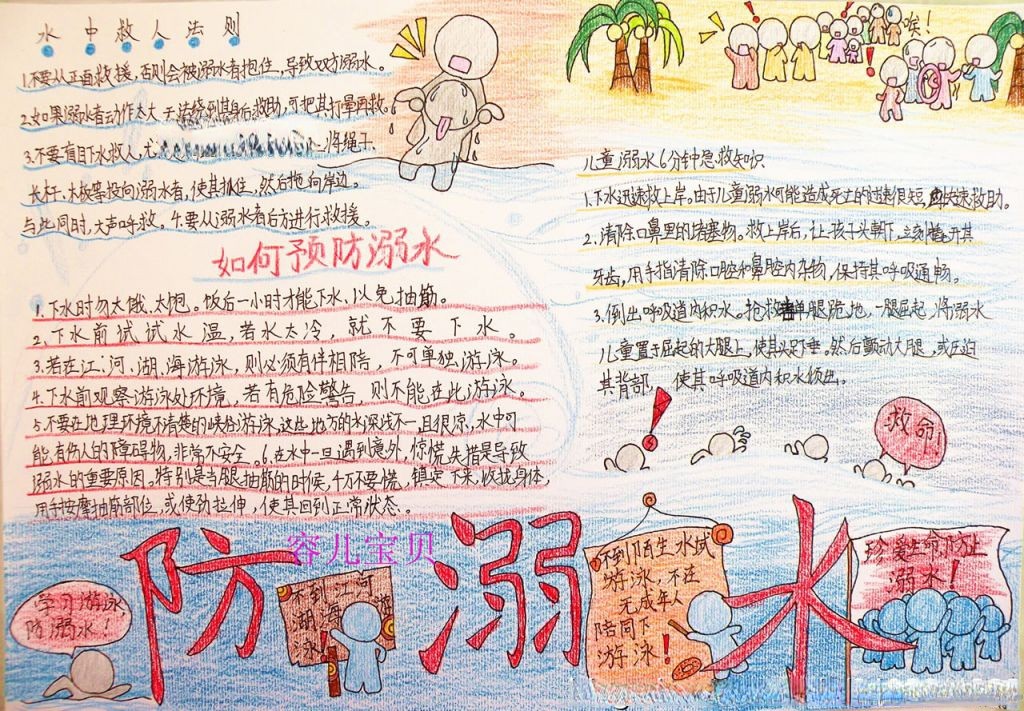 水中救人法则
1.不要从正面救援，否则会被溺水者抱住，导致双方溺水。
2.如果溺水者动作太大 无法绕到其身后救助，可把其打晕再救。
3.不要盲目下水救人，尤 将绳子、
长杆、木板等投向溺水者，使其抓住，然后拖向岸边。
与此同时，大声呼救。4.要从溺水者后方进行救援。
如何预防溺水
1.下水时勿太饿、太饱。饭后一小时才能下水，以免抽筋。
2、下水前试试水温，若水太冷，就不要下水。
3.若在江、河、湖、海游泳，则必须有伴相陪，不可单独游泳。
4.下水前观察游泳处环境，若有危险警告，则不能在此游泳。
5.不要在地理环境不清楚的峡谷游泳，这些地方的水深浅不一，且很凉，水中可
能有伤人的障碍物，非常不安全。6.在水中一旦遇到意外，惊慌失措是导致
溺水的重要原因。特别是当腿抽筋的时候，千万不要慌，镇定下来，收拢身体，
用手按摩抽筋部位，或使劲拉伸，使其回到正常状态。
唉！
儿童溺水6分钟急救知识
1.下水迅速救上岸。由于儿童溺水可能造成死亡的过速很短，快速救助。
2.清除口鼻里的堵塞物。救上岸后，让孩子头朝下，立刻撬开其
牙齿，用手指清除口腔和鼻腔内杂物，保持其呼吸通畅。
3.倒出呼吸道内积水。抢救者单腿跪地，一腿屈起，将溺水
儿童置于屈起的大腿上，使其头足下垂。然后颤动大腿，或压迫
其背部，使其呼吸道内积水倾出。
救命！
防溺水
容儿宝贝
学习游泳
防溺水！
不到江河
湖海游
泳！
不到陌生水域
游泳，不在
无成年人
陪同下
游泳！
珍爱生命，防止
溺水！